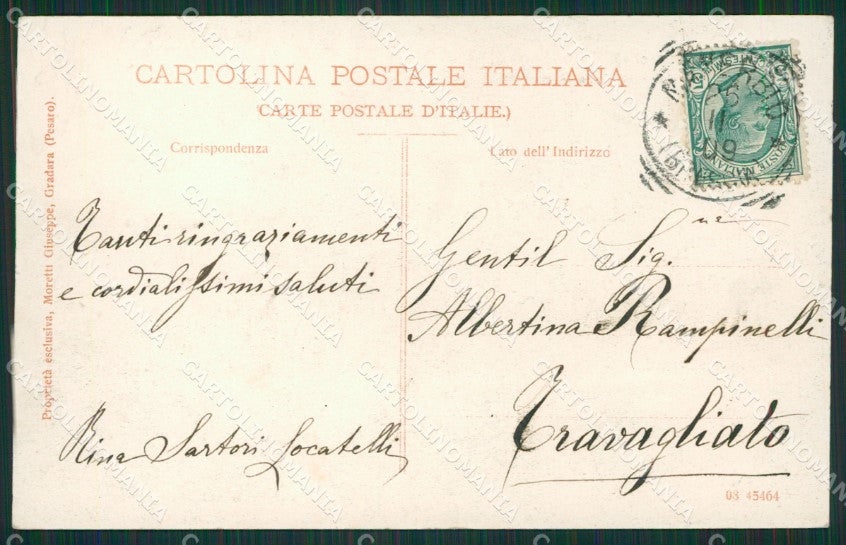 CARTOLINA POSTALE ITALIANA
(CARTE POSTALE D'ITALIE.)
Corrispondenza
Lato dell'Indirizzo
Proprietà esclusiva, Moretti Giuseppe, Gradara (Pesaro).
Tanti ringraziamenti
e cordialissimi saluti
Rina Sartori Locatelli
Gentil Sig.na
Albertina Rampinelli
Travagliato
08 45464
09
CARTOLINOMANIA